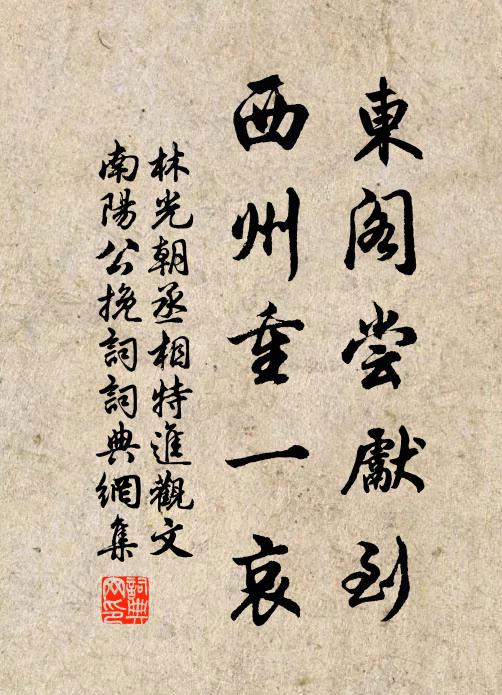 東閣嘗獻到
西州重一哀
林光朝丞相特進觀文
南陽公挽詞詞典網集
詞典网印